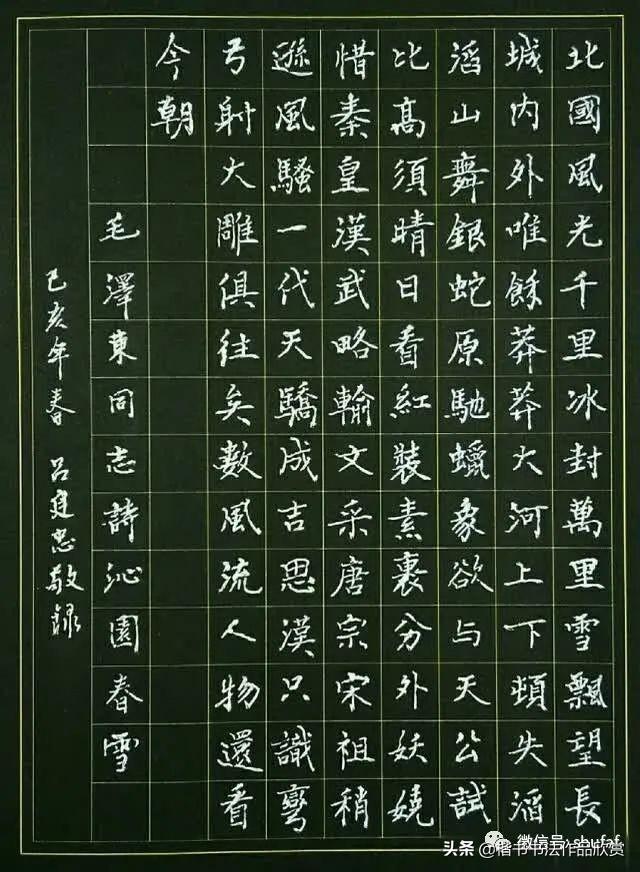 北國風光千里冰封萬里雪飄望長
城内外唯餘莽莽大河上下頓失滔
滔山舞銀蛇原馳蠟象欲与天公試
比高須晴日看紅裝素裹分外妖嬈
惜秦皇漢武略輸文采唐宗宋祖稍
遜風騷一代天驕成吉思漢只識彎
弓射大雕俱往矣數風流人物還看
今朝
毛澤東同志詩沁園春雪
己亥年春 呂忠敬録
微信号: shufaf
头条 @楷书书法作品欣赏